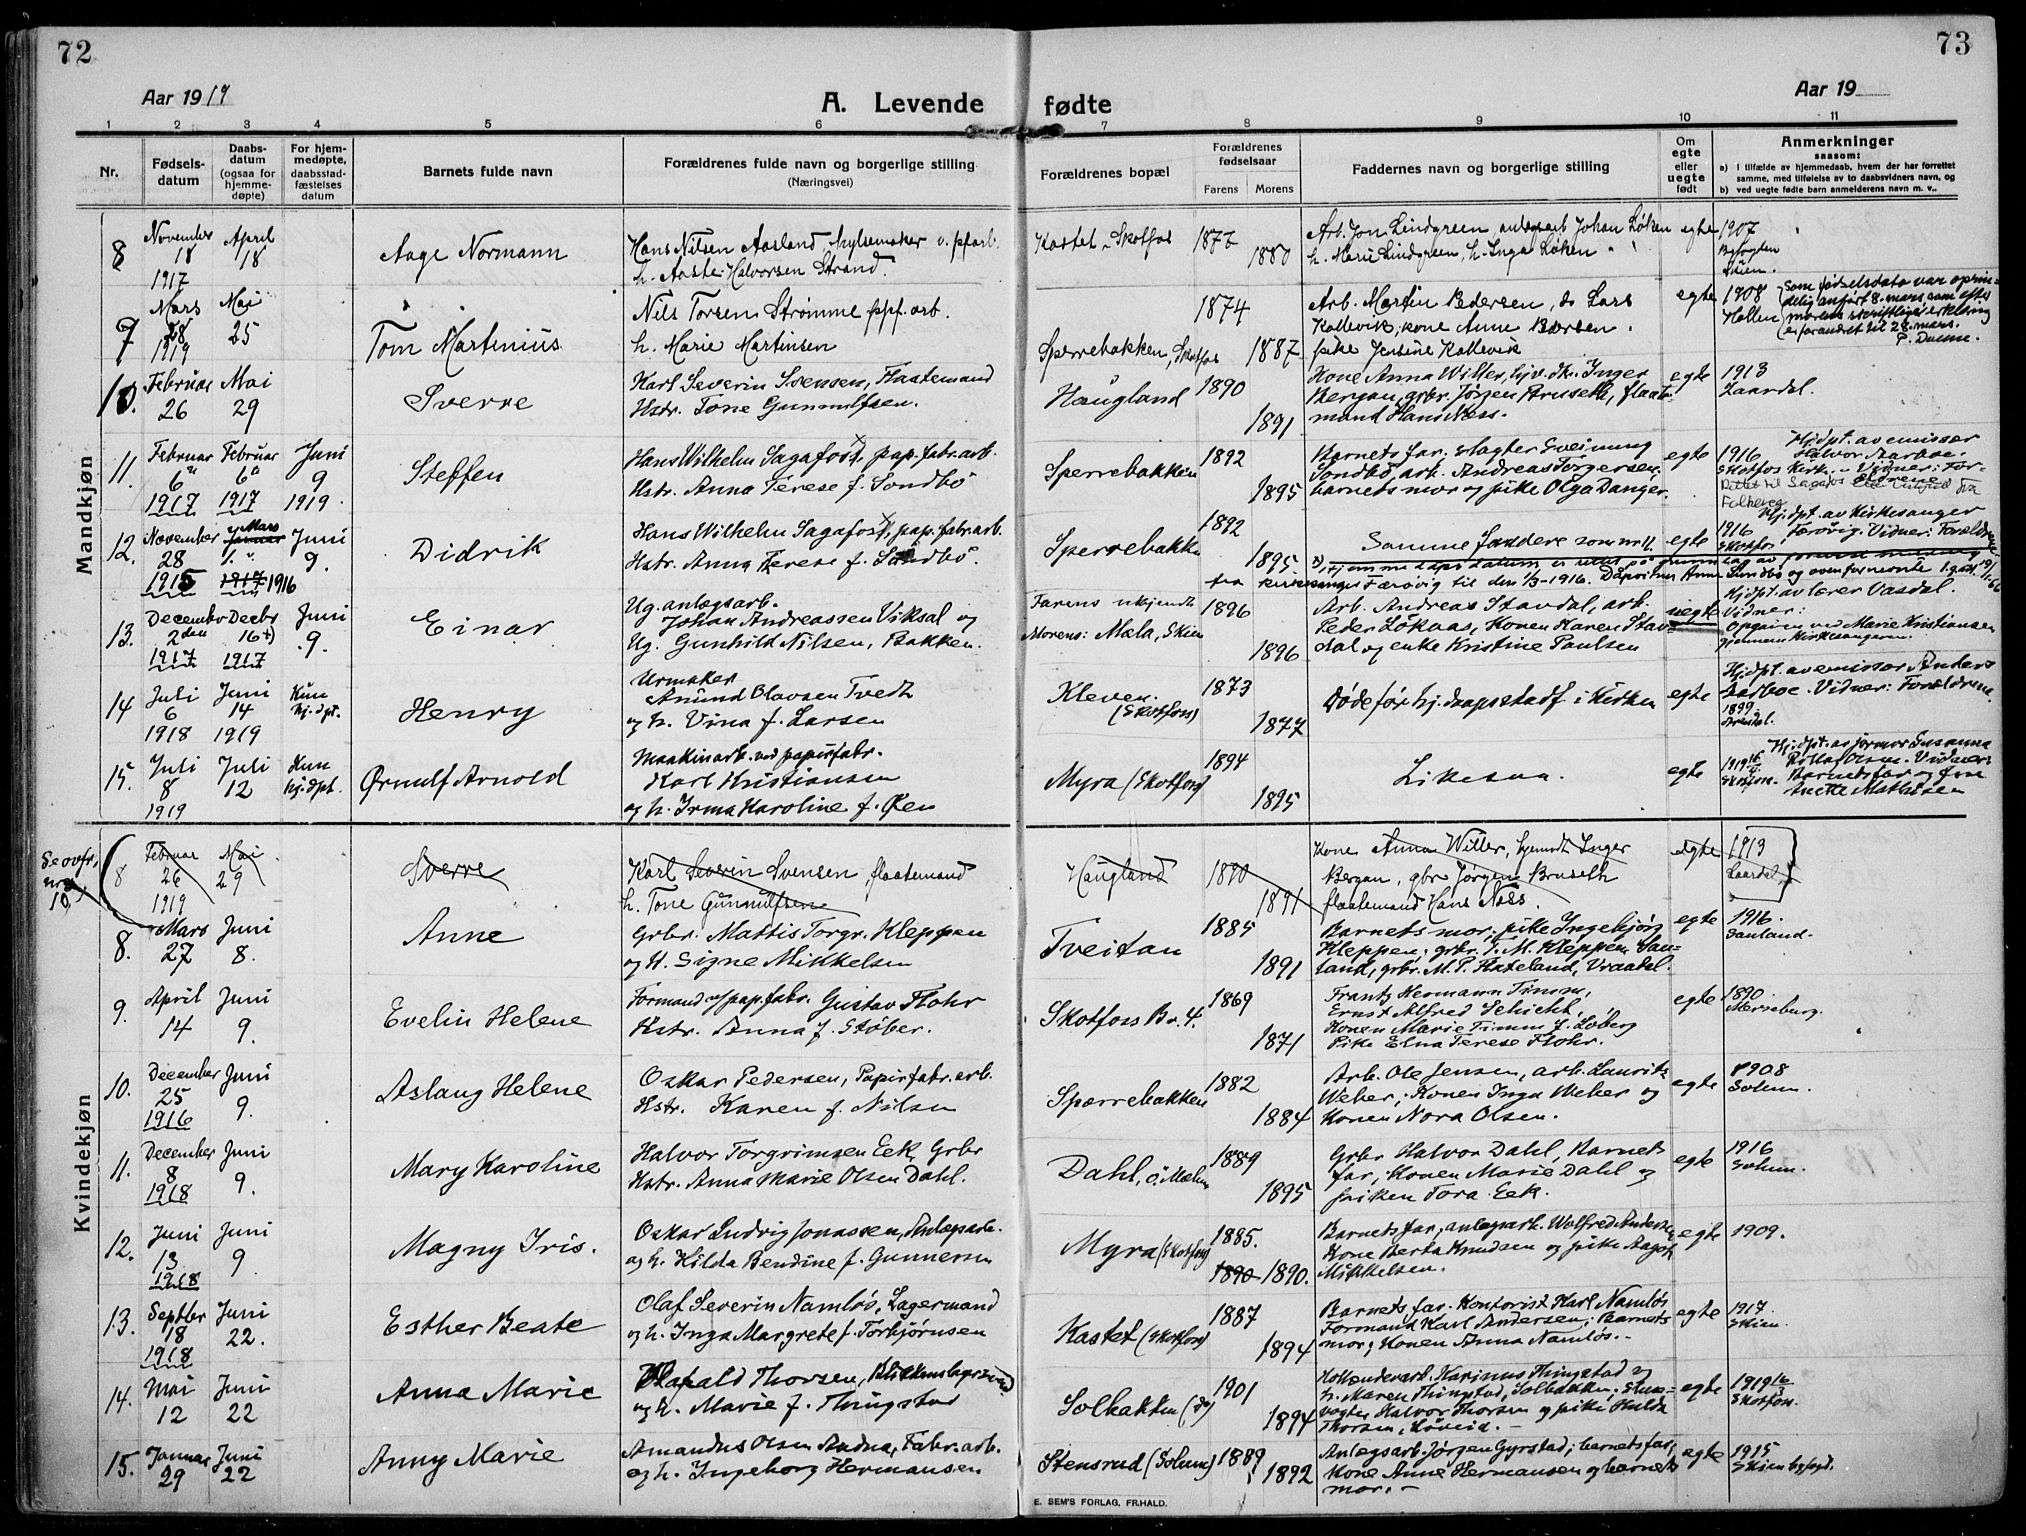 72
73
Aar 1919
A. Levende fødte
Aar 19
1 2 3 4 5 6 7 8 9 10 11
Nr.
Fødsels-
datum
Daabs-
datum
(ogsaa for
hjemme-
døpte)
For hjem-
medøpte,
daabsstad-
fæstelses
datum
Barnets fulde navn
Forældrenes fulde navn og borgerlige stilling
(Næringsvei)
Forældrenes bopæl
Forældrenes
fødselsaar
Farens Morens
Faddernes navn og borgerlige stilling
Om
egte
eller
uegte
født
Anmerkninger
saasom:
a) I tilfælde av hjemmedaab, hvem der har forrettet
samme, med tilføielse av to daabsvidners navn, og
b) ved uegte fødte barn anmelderens navn m. v..
Mandkjøn
8
November
18
1917
April
18
Aage Normann
Hans Nilsen Aasland, v.
h. Aaste Halvorsen Strand.
Kastet, Skotfos
1877
1880
Arb. Jon Lindgreen, Johan Løken
h. Marie Lindgreen, h. Inga Løken
egte
1907
Byfogden
Skien.
7
Mars
28
1919
Mai
25
Tom Martinius
Nils Torsen Strømme ppf. arb.
h. Marie Martinsen
Sperrebakken, Skotfos
1874
1887
Arb. Martin Pedersen, do Lars
Kallevik, kone Anne
pike Jensine Kallevik
egte
1908
Hollen
Som fødselsdato var oprin-
delig anført 8. mars, som efter
morens skriftlige erklæring
er forandret til 28. mars.
10.
Februar
26
Mai
29
Sverre
Karl Severin Svensen, Flaatemand
Hstr. Tone Gunnulfsen.
Haugland
1890
1891
Kone Anna Willer, hjv. dk. Inger
Bergan, grbr. Jørgen Bruseth, flaate-
mand Hans Næss.
egte
1913
Laardal.
11.
Februar
6
1917
Februar
6
1917
Juni
9
1919.
Steffen
Hans Wilhelm Sagafos, pap. fabr. arb.
Hstr. Anna Terese f. Sondbö
Sperrebakken
1892
1895
Barnets far, Sveinung
Sondbö arb. Andreas Torgersen,
barnets mor og pike Olga Danger.
egte
1916
Skotfos Kirk.
Hj.dpt. av emissær
Halvor Aarboe.
Vidner: For-
ældrene
Rettet til Sagafos
12.
November
28
1915
Januar
Mars
1.
1917 1916
Juni
9.
Didrik
Hans Wilhelm Sagafos, pap. fabr. arb.
Hstr. Anna Terese f. Sondbö.
Sperrebakken
1892
1895
Samme faddere som nr 11.
egte
1916
Skotfos
Hj.dpt. av Kirkesanger
Farövig. Vidner: Forældrene
Hjemmedaps datum er rettet på grunnlag av
fra kirkesanger Farövig til den 1/3-1916.
13.
December
2den
1917
Decbr
16
1917
Juni
9.
Einar
Ug. anlægsarb.
Johan Andreassen Viksal og
Ug. Gunhild Nilsen, Bakken.
Farens ukjendt
Morens: Mæla, Skien
1896
1896
Arb. Andreas Stavdal, arb.
Peder Løkaas, Konen Karen Stav-
dal og enke Kristine Paulsen
uegte
Hj.dpt. av lærer Vasdal.
Vidner:
Opgaven ved Marie Kristiansen
gjennem Kirkesangeren.
14
Juli
6
1918
Juni
14
1919
Kun
hj.dpt.
Henry
Urmaker
Amund Olavsen Tvedt
og h. Vina f. Larsen
Kleven.
(Skotfoss)
1873
1877
Døde før hj. daapsstadf. i Kirken
egte
Hj.dpt. av emissær Anders
Aarboe. Vidner: Forældrene.
1899
Arendal.
15.
Juli
8
1919
Juli
12
Kun
hj.dpt.
Ørnulf Arnold
Maskinarb. ved papirfabr.
Karl Kristiansen
og h. Irma Karoline f. Øen
Myra (Skotfoss)
1894
1895
Likesaa.
egte
1919
Skotfoss.
Hj.dpt. av jormor Susanna
Rolla Olsen. Vidner:
Barnets far og frue
Anette Mathisen
Kvindekjøn
Se ovfr.
nr.
10
8
Februar
26
1919
Mai
29
Sverre
Karl Severin Svensen, flaatemand
h. Tone Gunnulfsen
Haugland
1890
1891
Kone Anna Willer, Inger
Bergan, gbr Jørgen Bruseth
flaatemand Hans Næss.
egte
1913
Laardal
8.
Mars
27
Juni
8.
Anne
Grbr. Mattis Torgr. Kleppen
og H. Signe Mikkelsen
Tveitan
1885
1891
Barnets mor, pike Ingebjørg
Kleppen; grbr. T. M. Kleppen, Sau-
land, grbr. M. P. Flateland, Vraadal.
egte
1916.
Sauland.
9.
April
14
Juni
9.
Evelin Helene
Formand v/ pap. fabr. Gustav Flohr
Hstr. Anna f. Stöber.
Skotfoss Br. 4.
1869
1871
Frantz Hermann Timm,
Ernst Alfred Schicht,
Konen Marie Timm f. Loberg
Pike Elna Terese Flohr.
egte
1890.
Merseburg.
10.
December
25
1916
Juni
9.
Aslaug Helene
Oskar Pedersen, Papirfabr. arb.
Hstr. Karen f. Nilsen
Spærrebakken
1882
1884
Arb. Ole Jensen, arb. Laurits
Weber; Konen Inga Weber og
Konen Nora Olsen.
egte
1908
Solum.
11.
December
8
1918
Juni
9.
Mary Karoline
Halvor Torgrimsen Eek, Grbr
Hstr. Anna Marie Olsen Dahl.
Dahl, ö. Mælum
1889
1895
Grbr Halvor Dahl, Barnets
far, Konen Marie Dahl og
piken Tora Eek.
egte
1916
Solum.
12.
Juni
13.
1918
Juni
9.
Magny Iris.
Oskar Ludvig Jonassen, Anlægsarb.
og h. Hilda Bendine f. Gunnersen
Myra (Skotfoss)
1885.
1890 1890.
Barnets far, anlegsarb. Wolfred Andersen,
Kone Berta Knudsen og pike Aagot
Mikkelsen.
egte
1909.
13.
Septbr
18
1918
Juni
22.
Esther Beate
Olaf Severin Namløs, Lagermand
og h. Inga Margrete f. Torbjörnsen
Kastet (Skotfoss)
1887
1894
Barnets far. Kontorist Karl Namløs
Formand Karl Andersen; Barnets
mor, Konen Anna Namløs.
egte
1917.
Skien.
14.
Mai
12
Juni
22
Anna Marie
Harald Thorsen, Blikkenslagersvend
og h. Marie f. Thingstad
Solbakken (do)
1901
1894
Hollænderarb. Karinus Thingstad og
h. Maren Thingstad, Solbakken; Sluse-
vogter Halvor Thorsen og pike Hulda
Thorsen, Løveid.
egte
1919
Skotfoss.
15.
Januar
29
Juni
22
Anny Marie
Amandus Olsen Aadna, Fabr. arb.
og h. Ingeborg Hermansen
Stensrud (Solum)
1889
1892
Anlægsarb. Jørgen Gyrstad; barnets far,
Kone Anne Hermansen og barnets
mor.
egte
1915
Skien byfogd.
E. SEM'S FORLAG, FR.HALD.